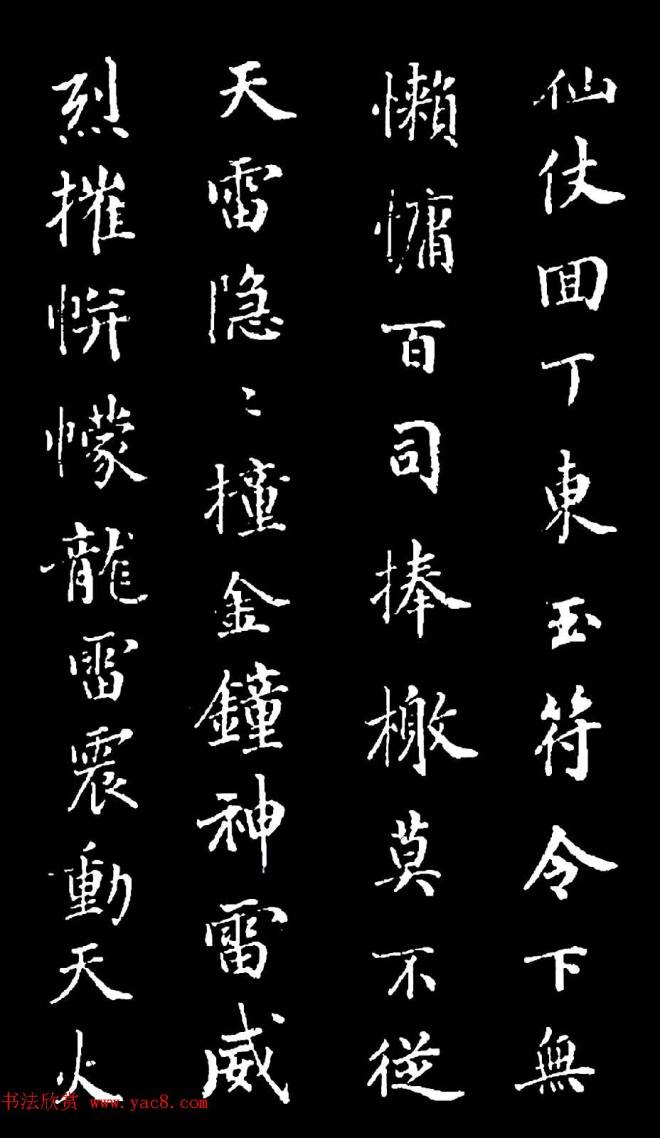 仙仗回丁東玉符令下無
懶慵百司捧檄莫不從
天雷隐〻撞金鐘神雷威
烈摧帡幪龍雷震動天火
书法欣赏 www.yac8.com